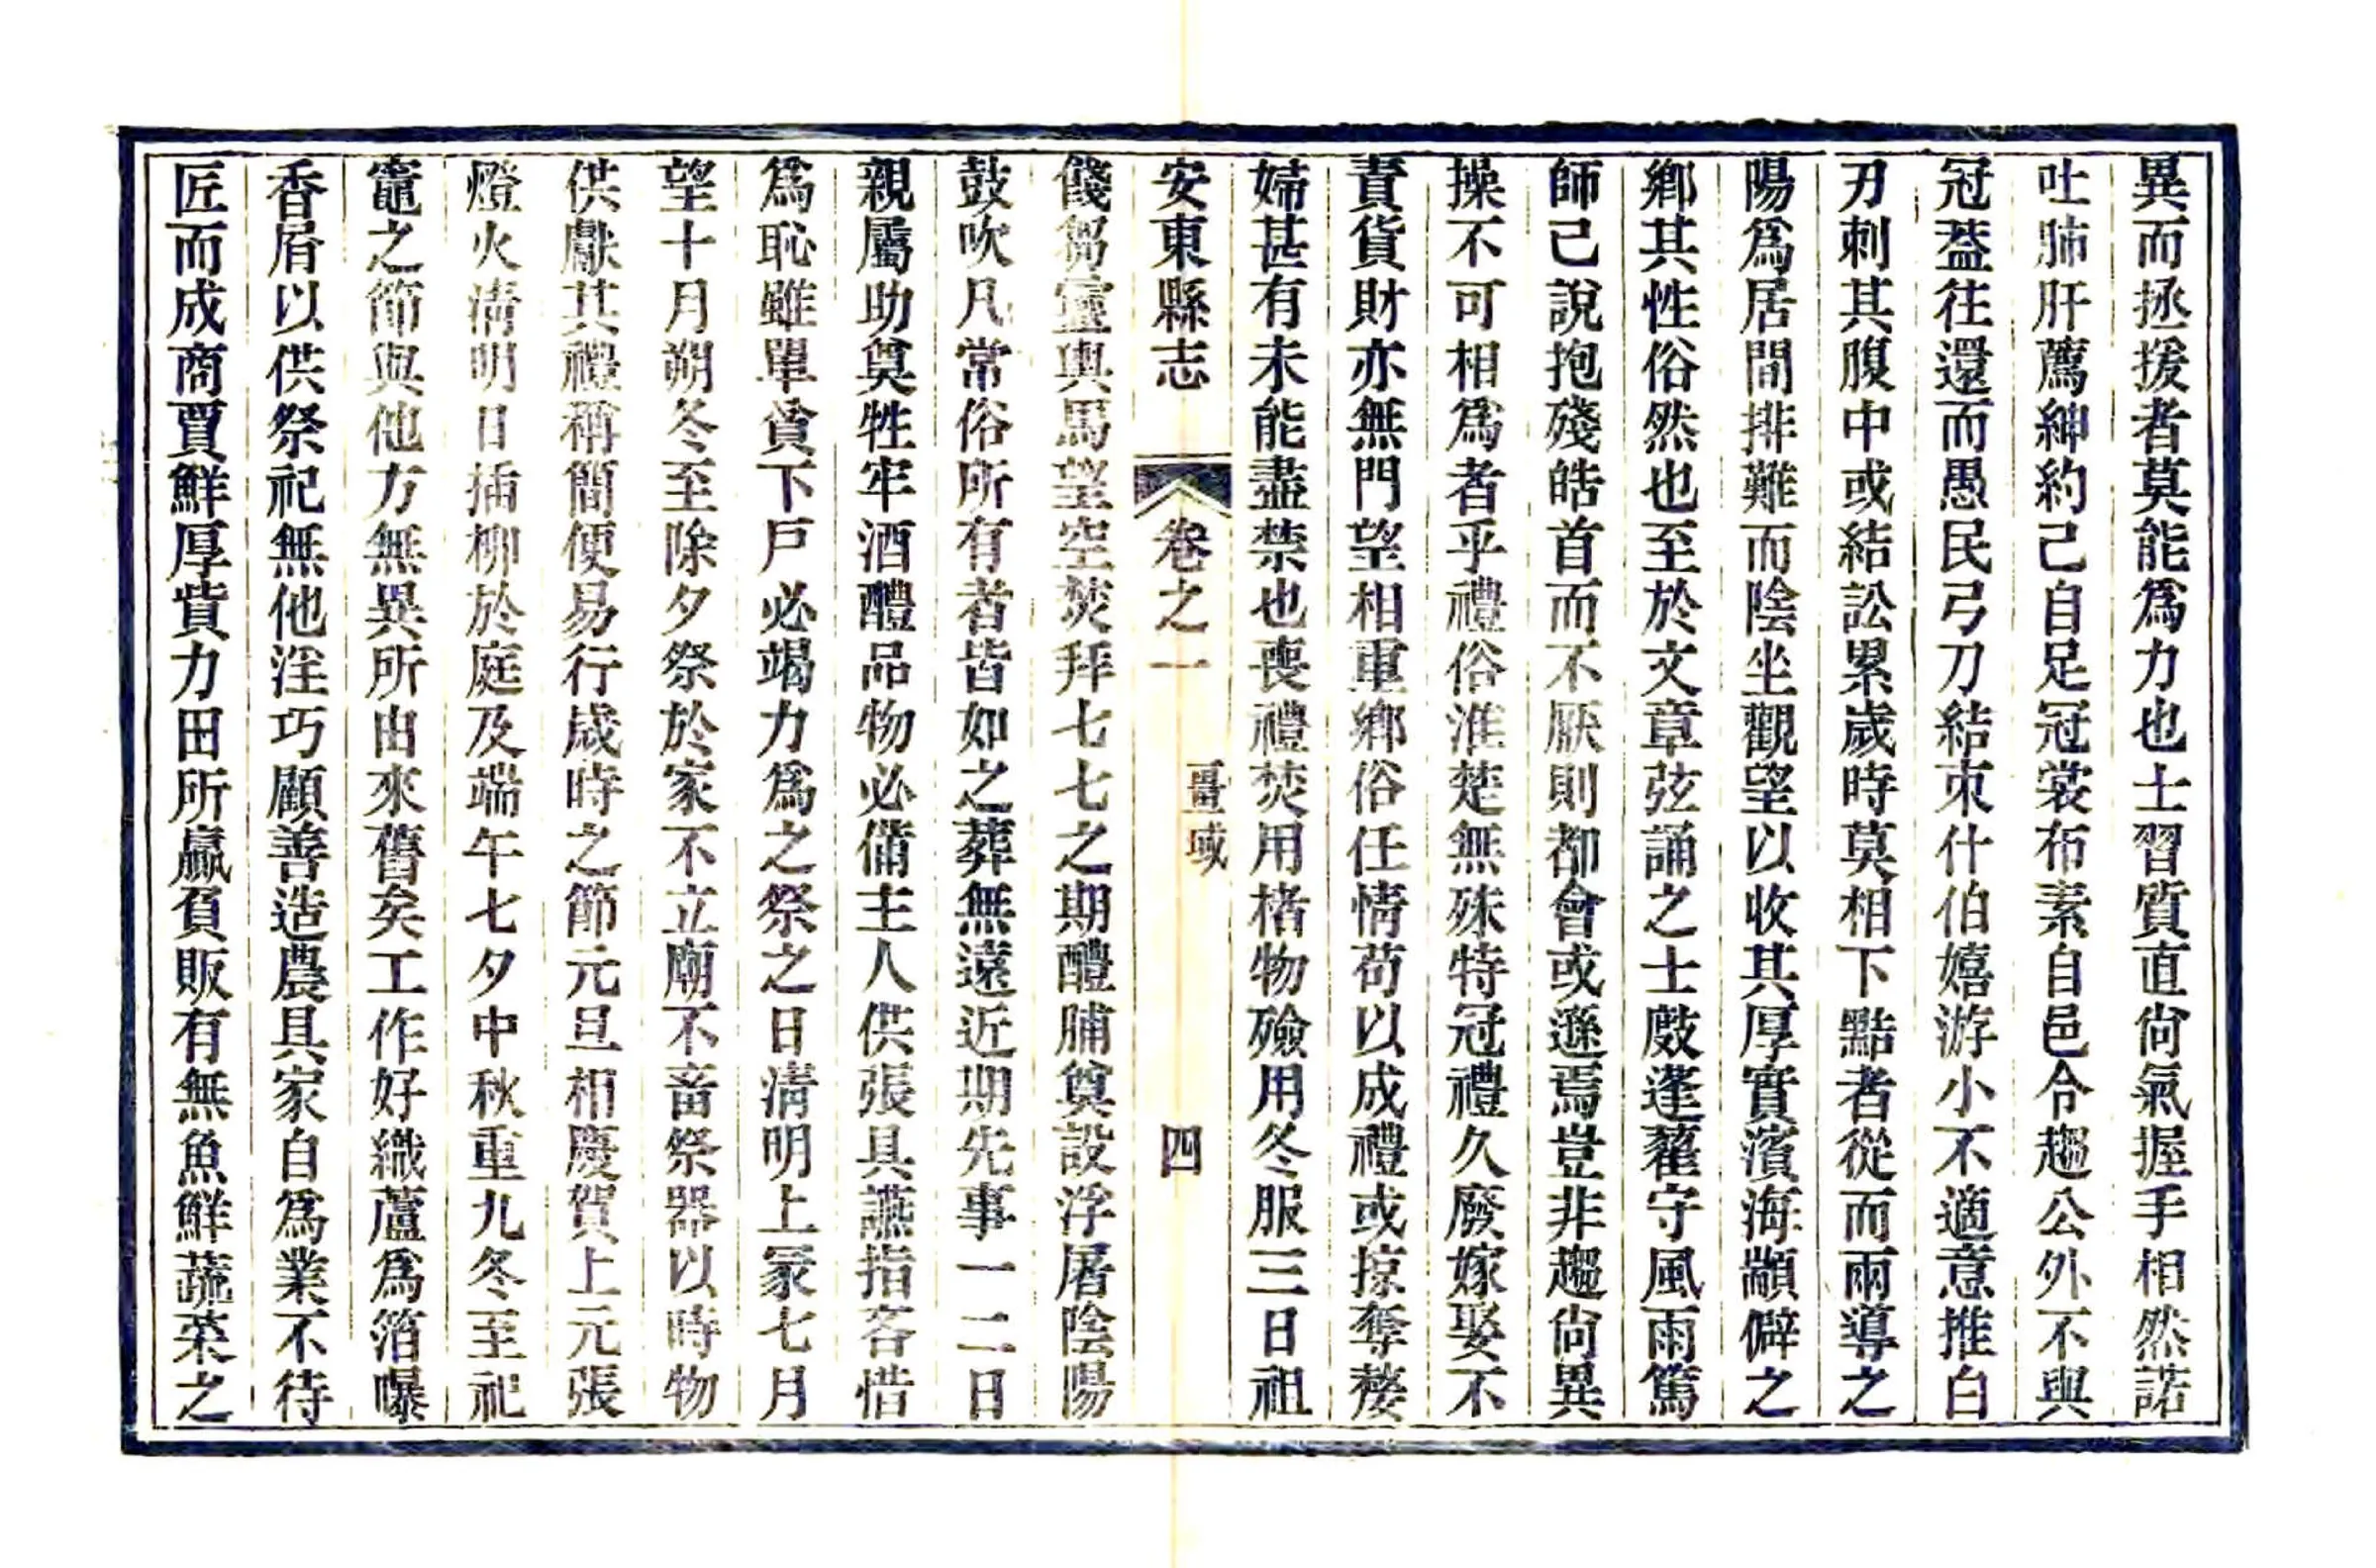 異而拯援者莫能爲力也士習質直尙氣握手相然諾
吐肺肝薦紳約己自足冠裳布素自邑令趨公外不與
冠蓋往還而愚民弓刀結束什伯嬉游小不適意推白
刃刺其腹中或結訟累歲時莫相下黠者從而兩導之
陽爲居間排難而陰坐觀望以收其厚實濱海顓僻之
鄕其性俗然也至於文章弦誦之士廏蓬藋守風雨篤
師己說抱殘皓首而不厭則都會或遜焉豈非趨尙異
操不可相爲者乎禮俗淮楚無殊特冠禮久廢嫁娶不
責貨財亦無門望相重鄕俗任情苟以成禮或掠奪嫠
婦甚有未能盡禁也喪禮焚用楮物殮用冬服三日祖
安東縣志 卷之一 畺域 四
餞芻靈輿馬望空焚拜七七之期醴脯奠設浮屠陰陽
鼓吹凡常俗所有者皆如之葬無遠近期先事一二日
親屬助奠牲牢酒醴品物必備主人供張具讌指客惜
爲恥雖單貧下戶必竭力爲之祭之日淸明上冢七月
望十月朔冬至除夕祭於家不立廟不畜祭器以時物
供獻其禮稱簡便易行歲時之節元旦相慶賀上元張
燈火淸明日插柳於庭及端午七夕中秋重九冬至祀
竈之節與他方無異所由來舊矣工作好織蘆爲箔曝
香屑以供祭祀無他淫巧顧善造農具家自爲業不待
匠而成商賈鮮厚貲力田所贏負販有無魚鮮蔬菜之